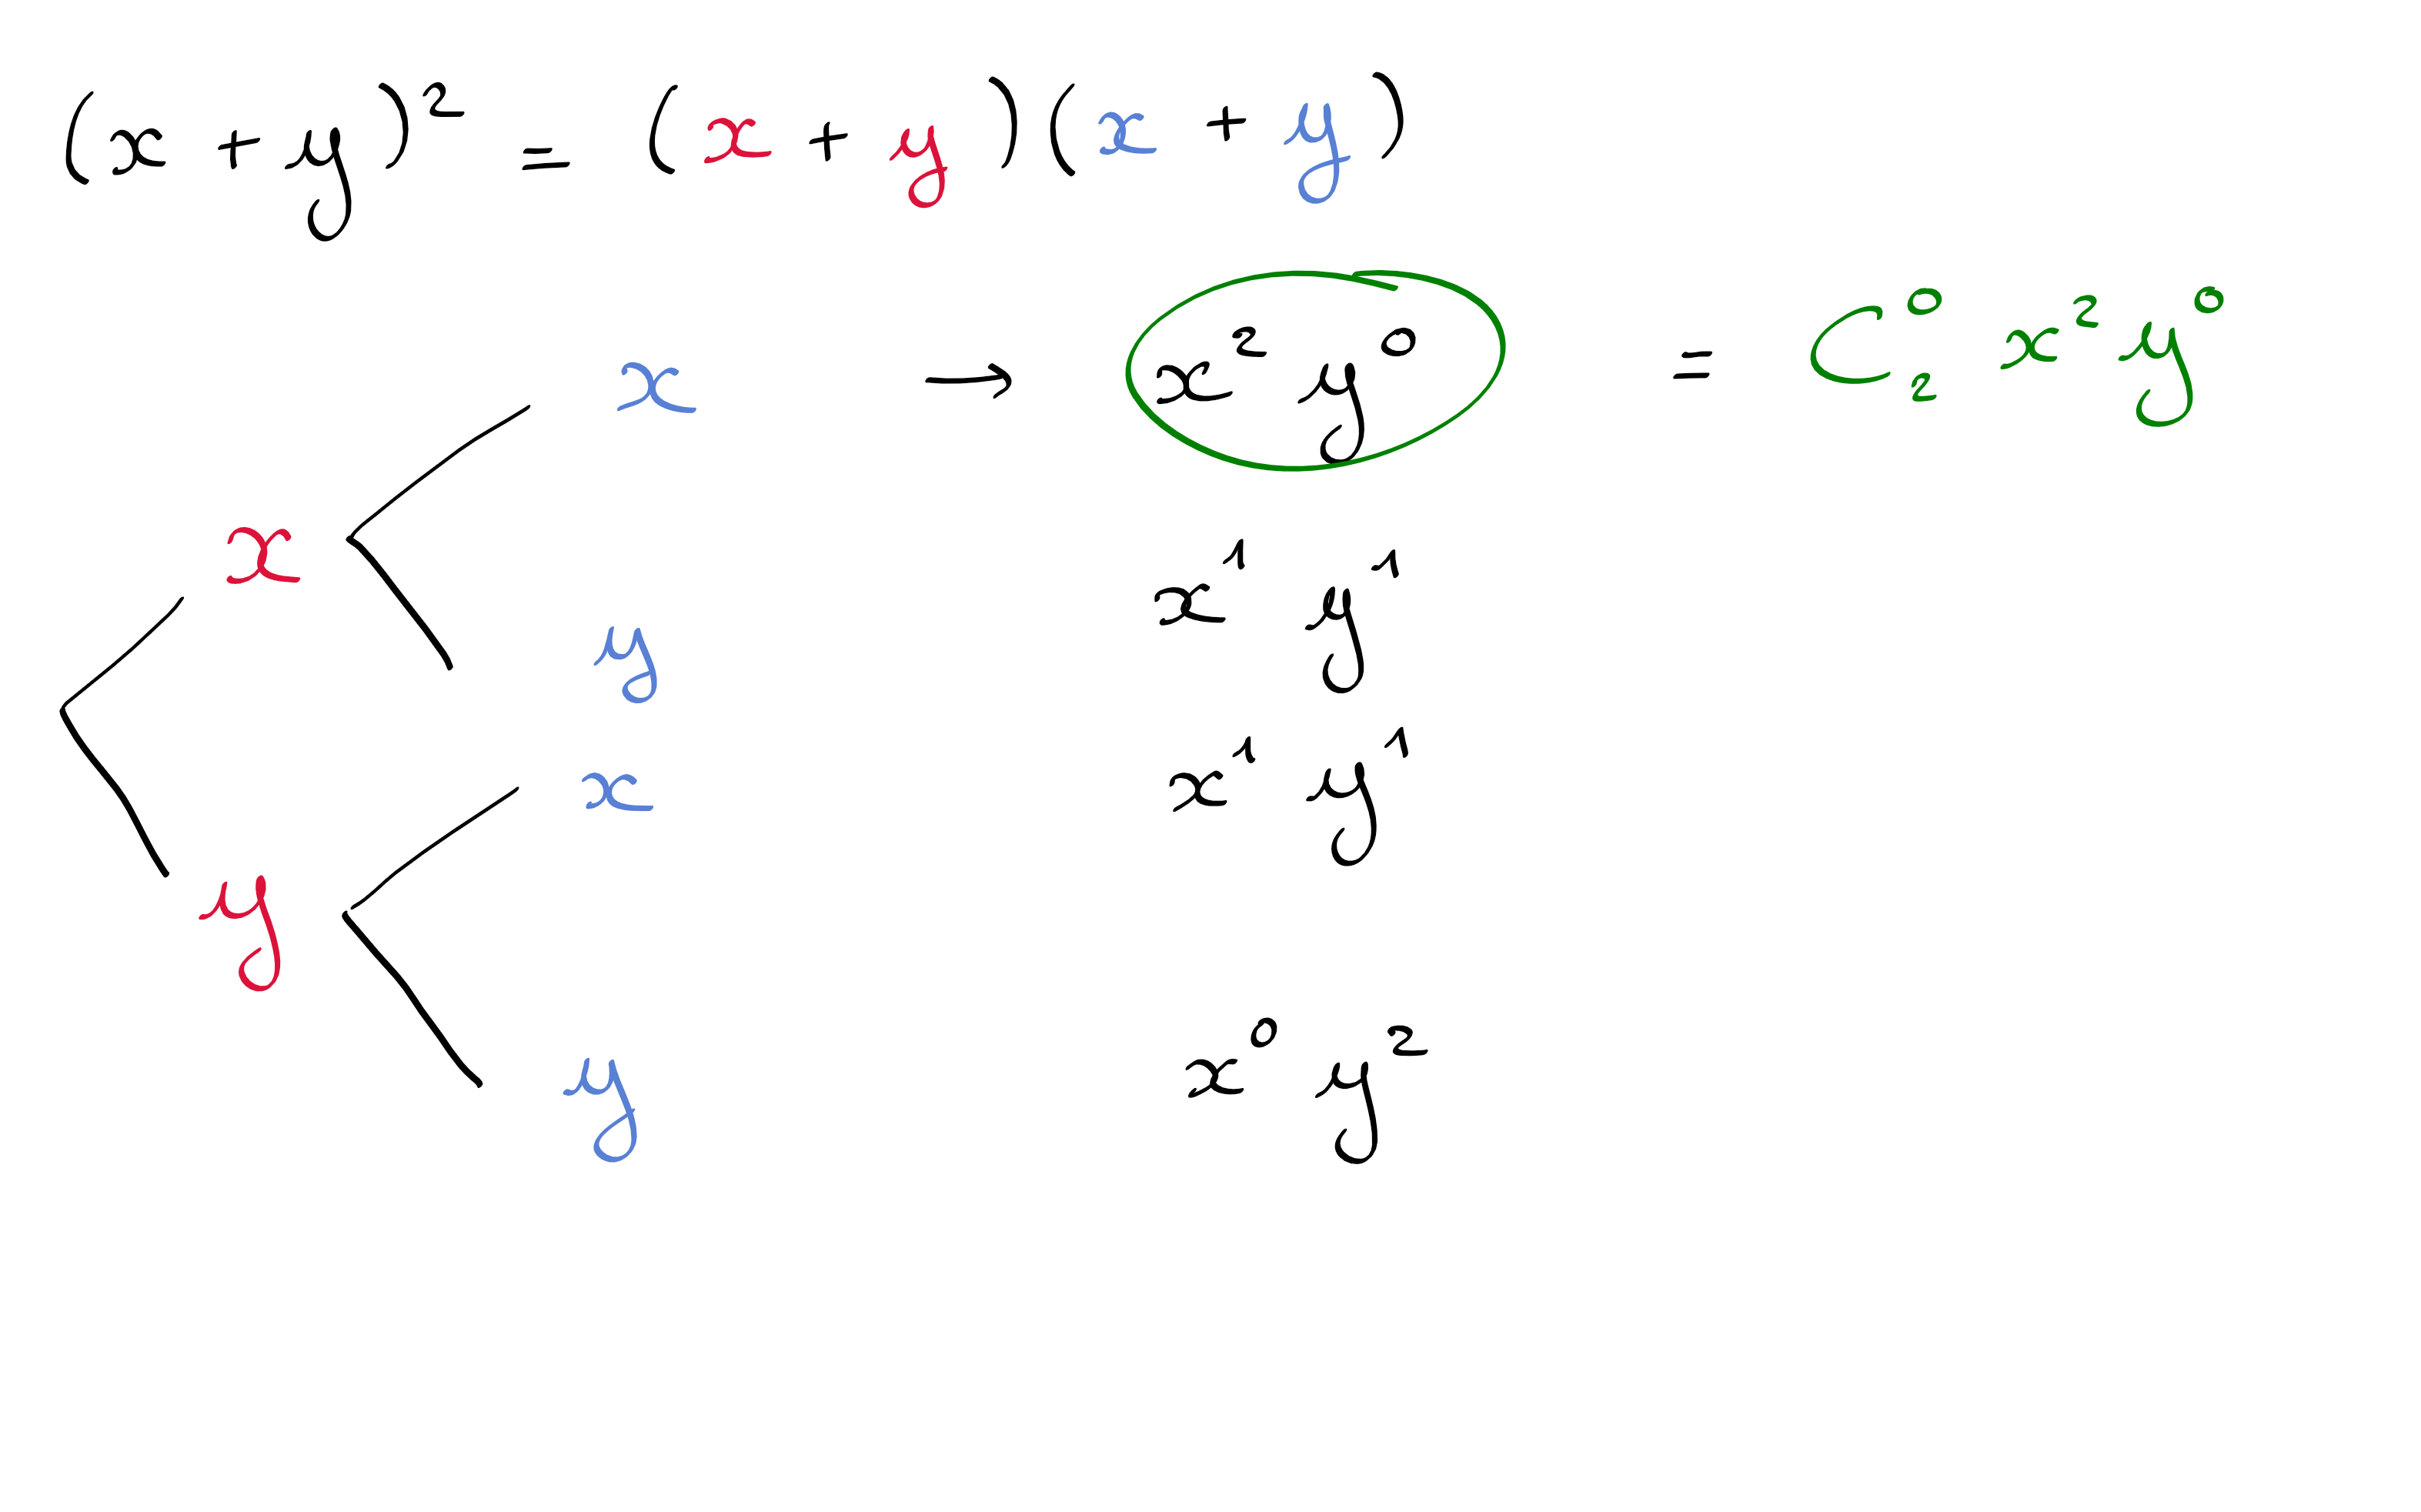 (x + y)² = (x + y)(x + y)
x → x² y⁰ = C₂⁰ x² y⁰
x
y x¹ y¹
x x¹ y¹
y
y x⁰ y²